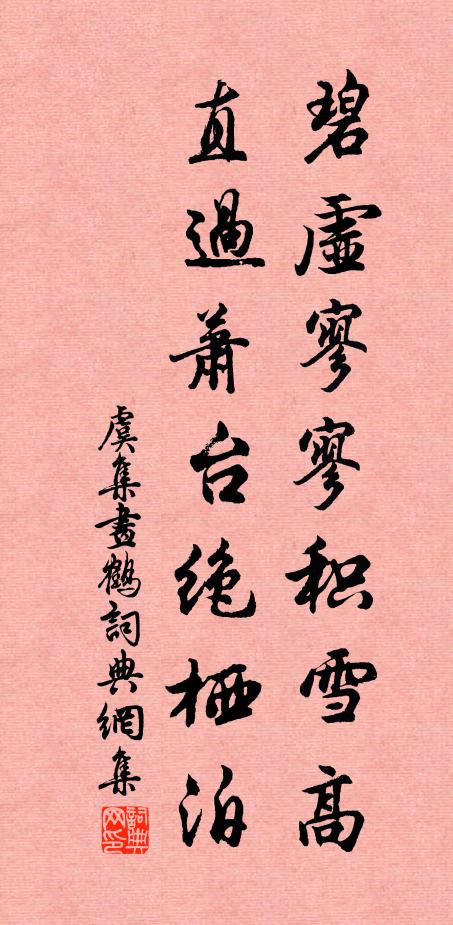 碧虛寥寥積雪高
直過蕭台絶栖泊
虞集畫鶴詞典網集
詞典網印